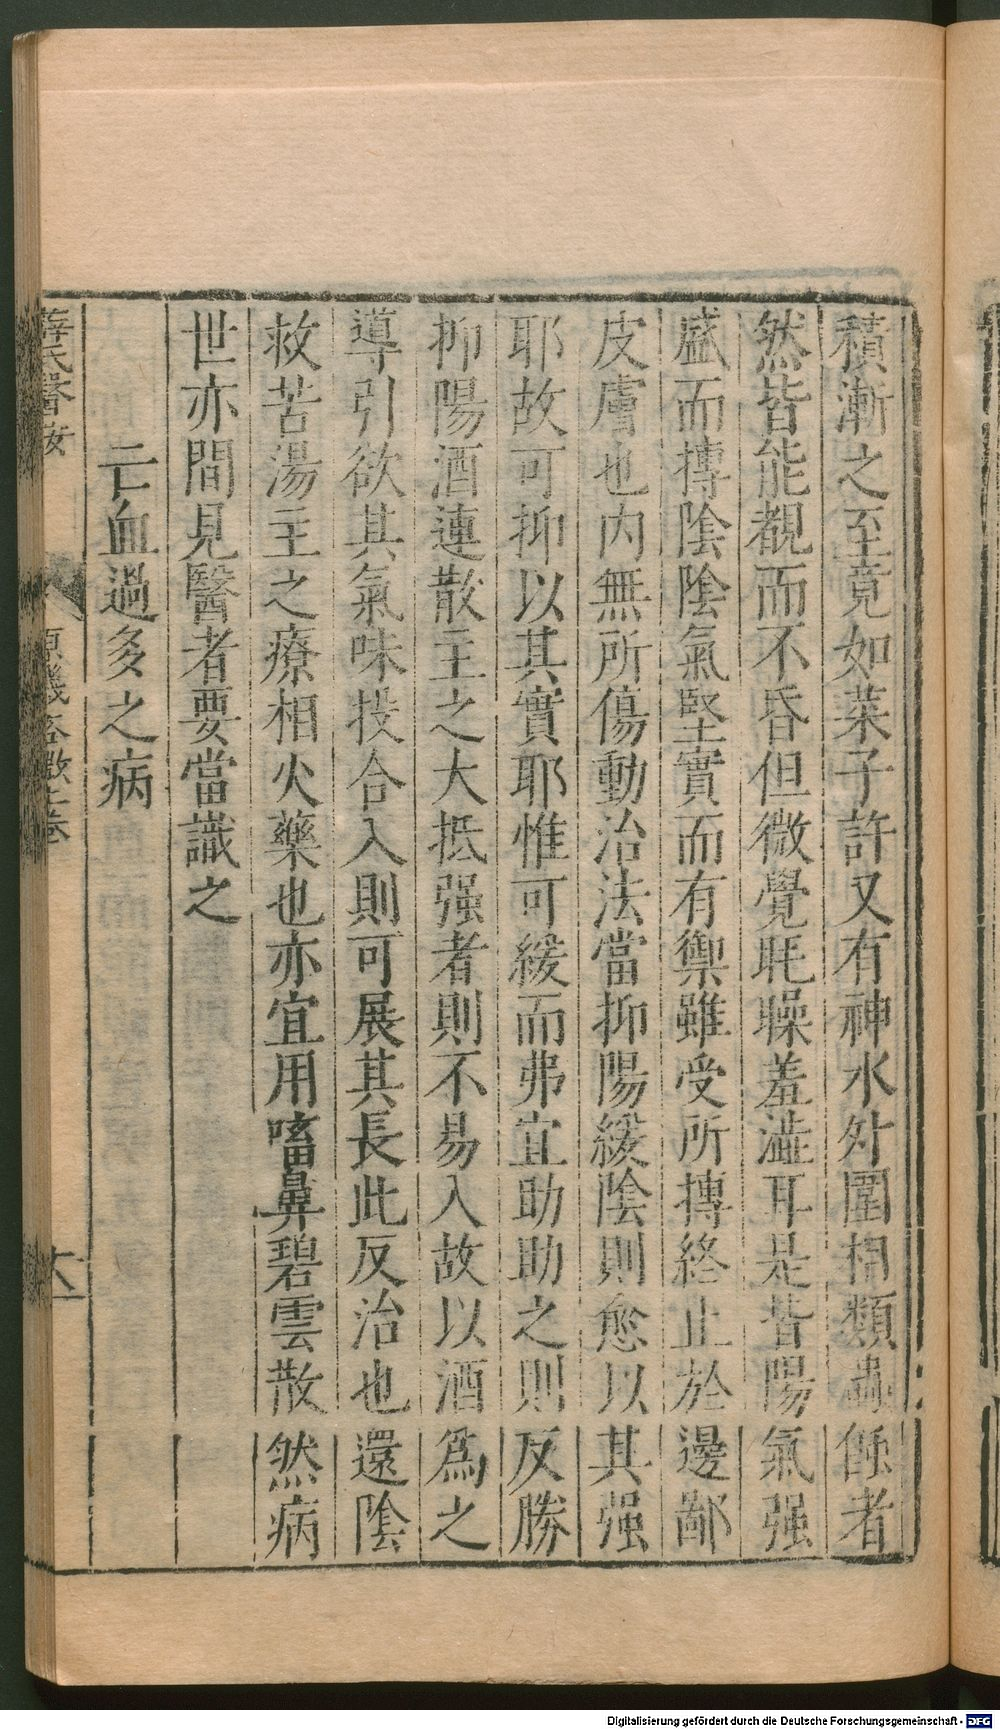 積漸之至竟如菜子許又有神水外圍相類蟲傷者
然皆能覩而不昏但微覺眊矂羞澁耳是皆陽氣强
盛而摶陰陰氣堅實而有禦雖受所摶終止於邊鄙
皮膚也内無所傷動治法當抑陽緩陰則愈以其强
耶故可抑以其實耶惟可緩而弗宜助助之則反勝
抑陽酒連散主之大抵强者則不易入故以酒爲之
導引欲其氣味投合入則可展其長此反治也還陰
救苦湯主之療相火藥也亦宜用㗜鼻碧雲散然病
世亦間見醫者要當識之
亡血過多之病
薛氏醫按
原機啓微上卷
Digitalisierung gefördert durch die Deutsche Forschungsgemeinschaft - DFG